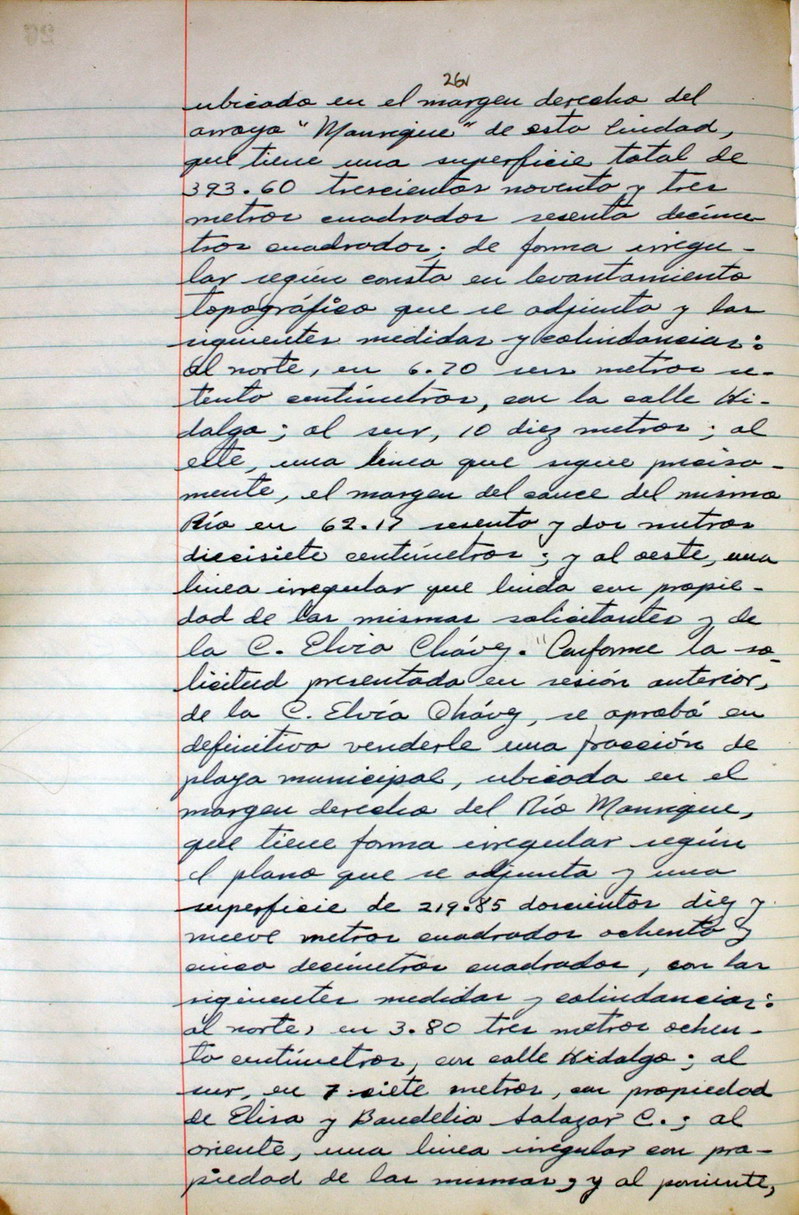 26
ubicada en el margen derecho del
arroyo "Manrique" de esta Ciudad,
que tiene una superficie total de
393.60 trescientos noventa y tres
metros cuadrados sesenta decíme-
tros cuadrados; de forma irregu-
lar según consta en levantamiento
topográfico que se adjunta y las
siguientes medidas y colindancias:
al norte, en 6.70 seis metros se-
tenta centímetros, con la calle Hi-
dalgo; al sur, 10 diez metros; al
este, una linea que sigue precisa-
mente, el margen del cauce del mismo
Río en 62.17 sesenta y dos metros
diecisiete centímetros; y al oeste, una
linea irregular que linda con propie-
dad de las mismas solicitantes y de
la C. Elvia Chávez. "Conforme la so-
licitud presentada en sesión anterior,
de la C. Elvia Chávez, se aprobó en
definitiva venderle una fracción de
playa municipal, ubicada en el
margen derecho del Río Manrique,
que tiene forma irregular según
el plano que se adjunta y una
superficie de 219.85 doscientos diez y
nueve metros cuadrados ochenta y
cinco decímetros cuadrados, con las
siguientes medidas y colindancias:
al norte, en 3.80 tres metros ochen-
ta centímetros, con calle Hidalgo; al
sur, en 7 siete metros, con propiedad
de Elisa y Baudelia Salazar C.; al
oriente, una linea irregular con pro-
piedad de las mismas, y al poniente,